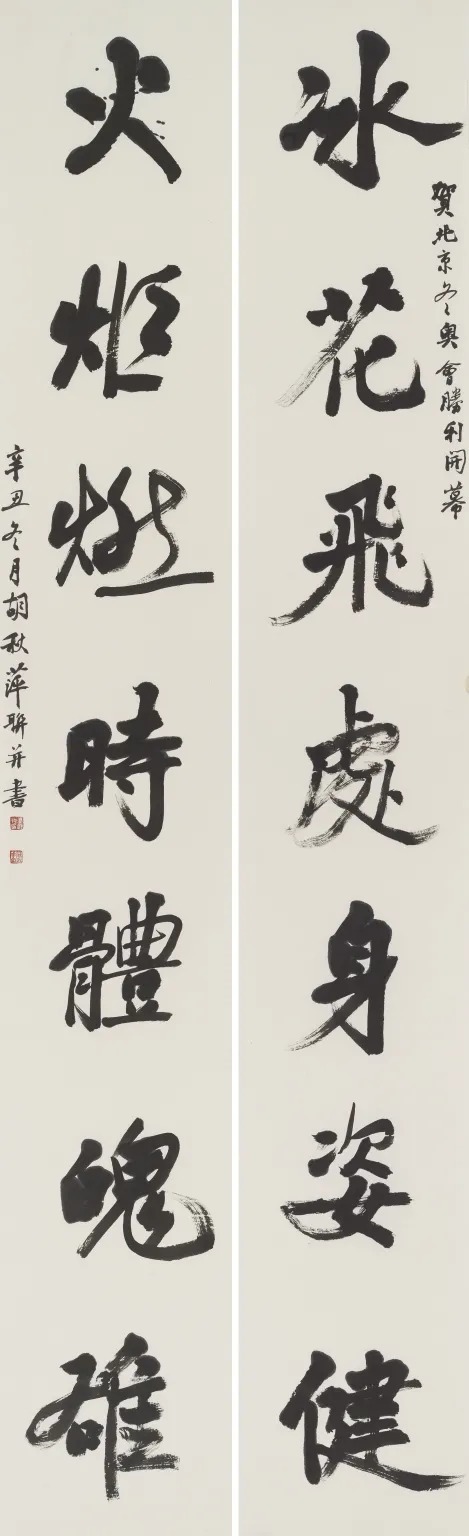 冰花飛處身姿健
賀北京冬奥會勝利開幕
火炬燃時體魄雄
辛丑冬月胡秋萍聯并書